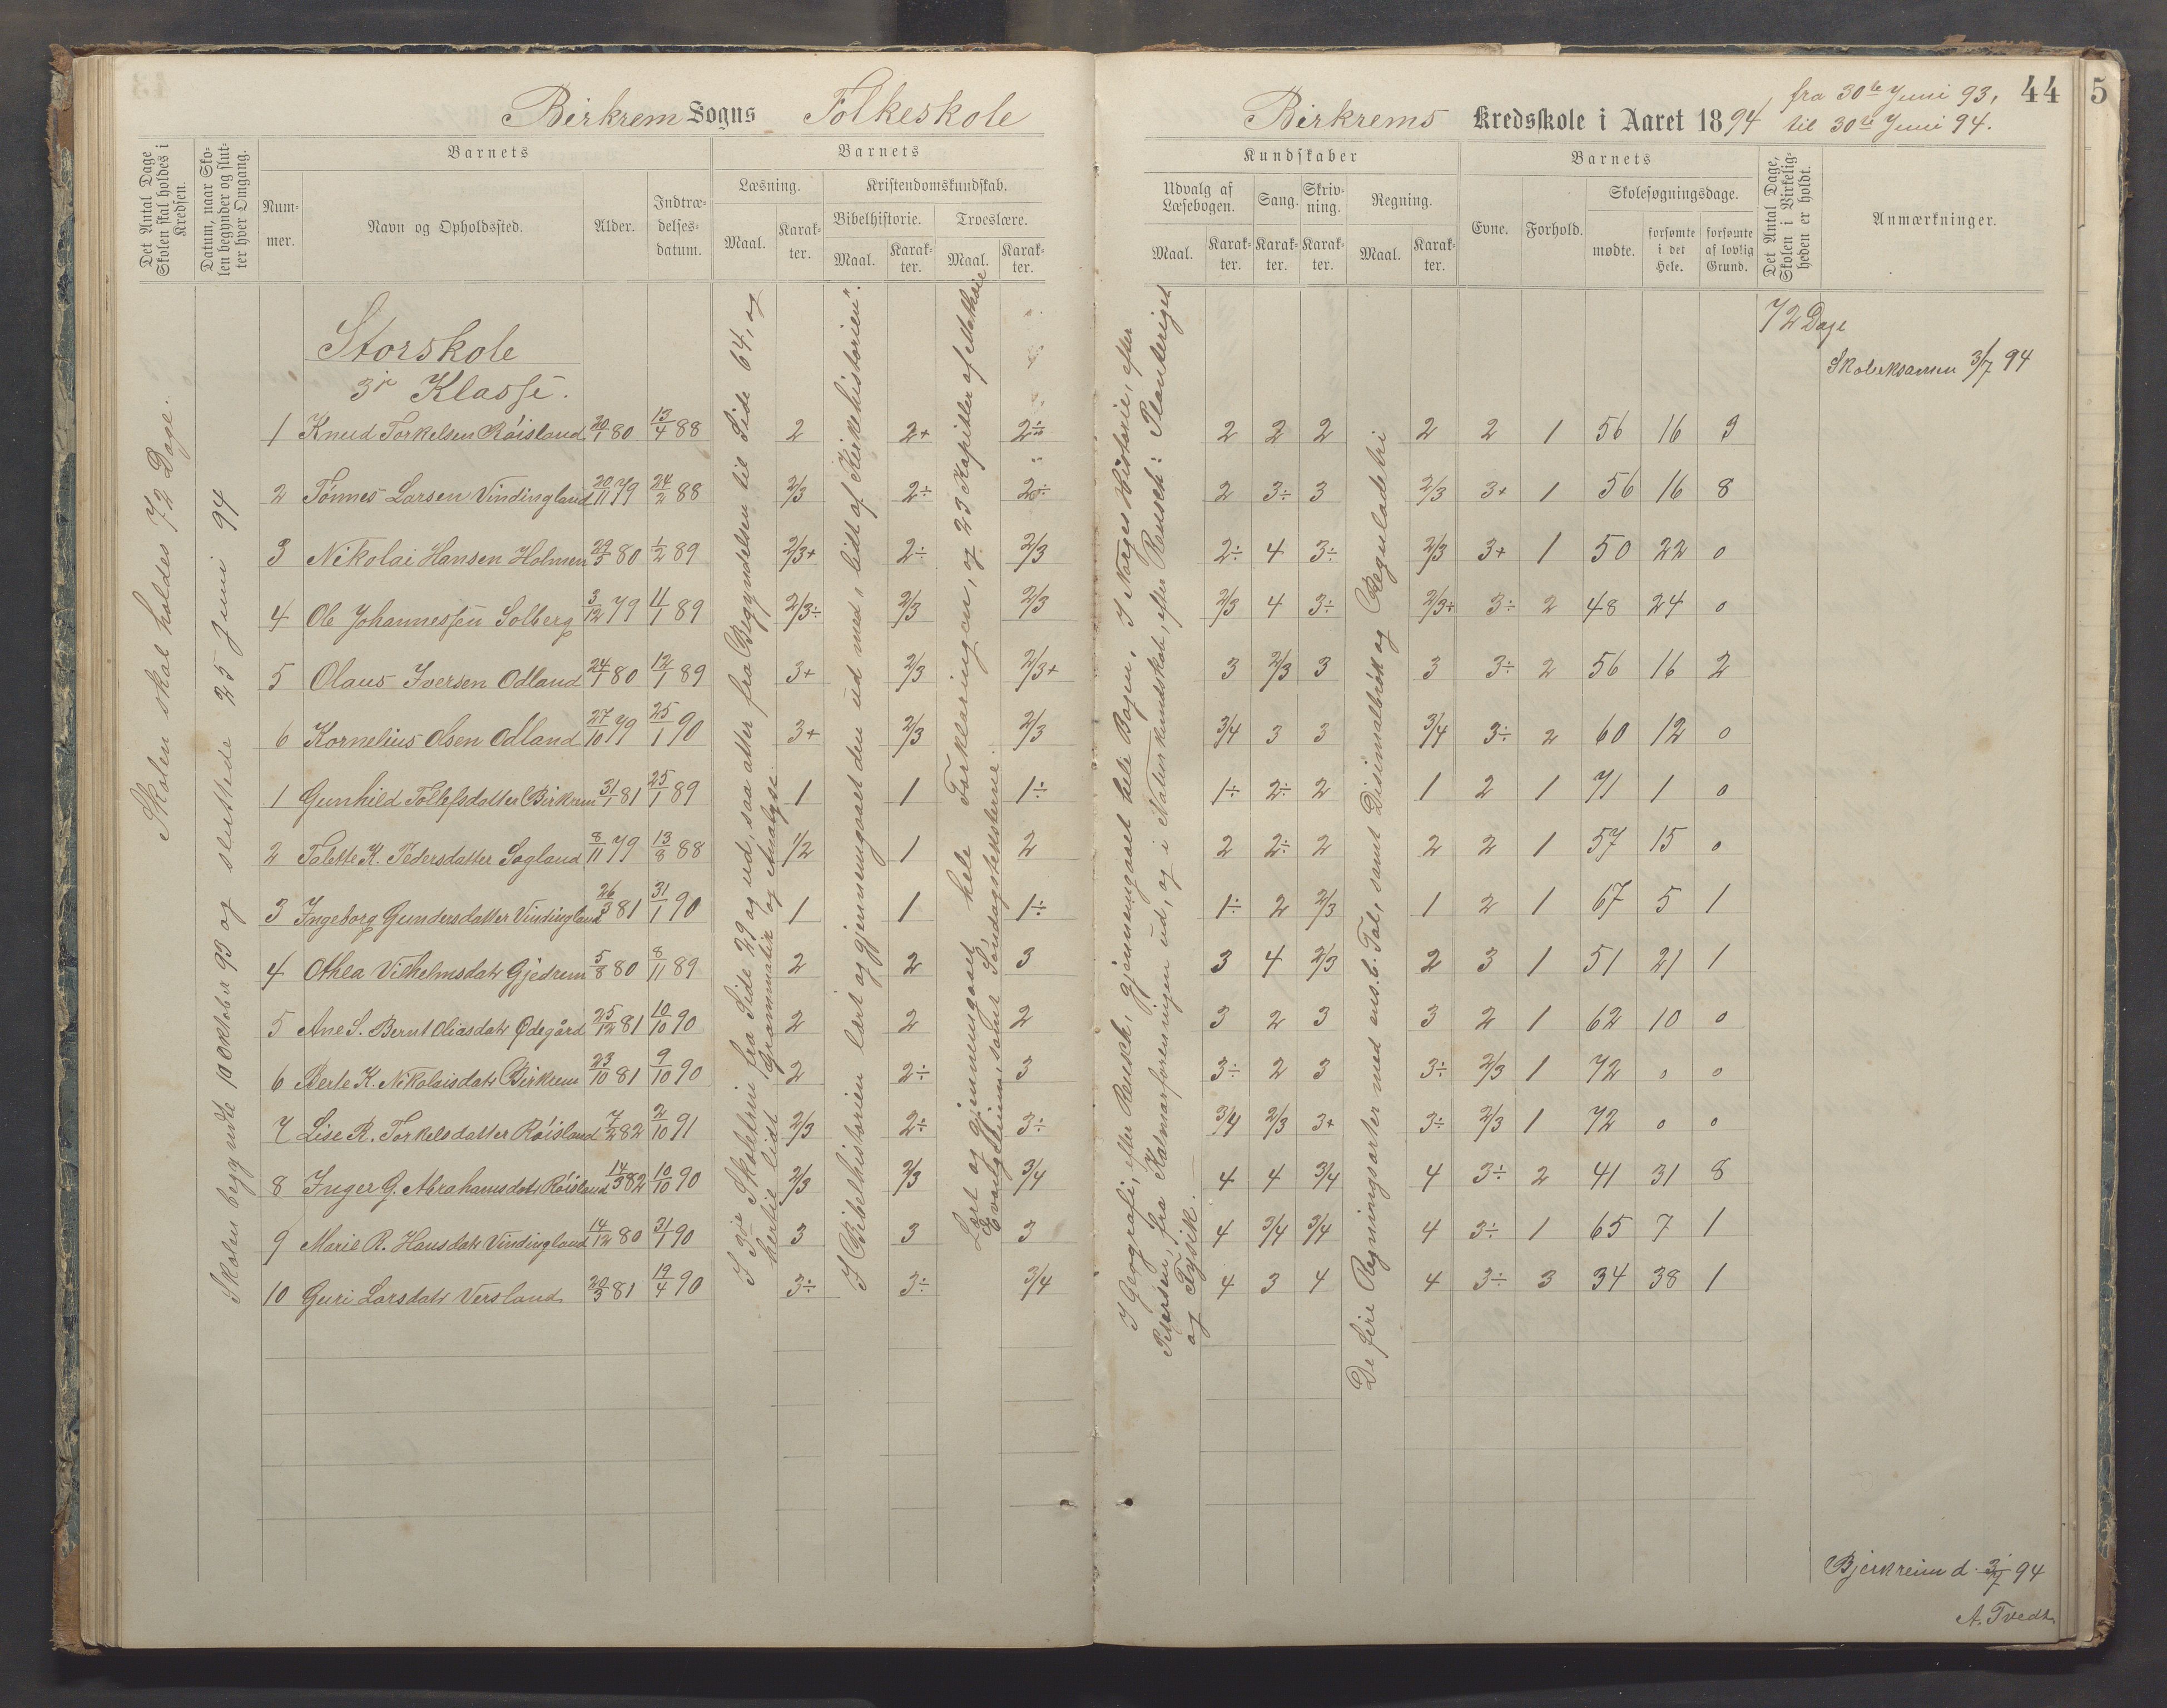 Birkrem Sogns Folkeskole
Det Antal Dage Skolen skal holdes i Kredsen.
Datum, naar Skolen begynder og slutter hver Omgang.
Barnets
Nummer.
Navn og Opholdssted.
Alder.
Indtrædelsesdatum.
Barnets
Læsning.
Maal.
Karakter.
Kristendomskundskab.
Bibelhistorie.
Maal.
Karakter.
Troeslære.
Maal.
Karakter.
Skolen skal holdes 72 Dage.
Skolen begyndte 10 Oktober 93 og sluttede 25 Juni 94
Storskole
3je Klasse.
1 Knud Torkelsen Röisland 20/1 80 13/4 88 2 2+ 2÷
2 Tönnes Larsen Vindingland 20/11 79 24/2 88 2/3 2÷ 2÷
3 Nikolai Hansen Holmen 29/3 80 1/2 89 2/3+ 2÷ 2/3
4 Ole Johannessen Solberg 3/12 79 11/1 89 2/3÷ 2/3 2/3
5 Olaus Iversen Odland 24/1 80 12/1 89 3+ 2/3 2/3+
6 Kornelius Olsen Odland 27/10 79 25/1 90 3+ 2/3 2/3
1 Gunhild Tollefsdatter Birkrem 31/1 81 25/1 89 1 1 1÷
2 Talette K. Pedersdatter Sogland 8/11 79 13/8 88 1/2 1 2
3 Ingeborg Gundersdatter Vindingland 26/3 81 31/1 90 1 1 1÷
4 Othea Vilhelmsdatr Gjedrem 5/8 80 8/11 89 2 2 3
5 Ane S. Bernt Oliasdatr Ødegård 25/12 81 10/10 90 2 2 2
6 Berte K. Nikolaisdatr Birkrem 23/10 81 9/10 90 2 2÷ 3
7 Lise R. Torkelsdatter Röisland 7/2 82 2/10 91 2/3 2÷ 3÷
8 Inger G. Abrahamsdatr Röisland 14/3 82 10/10 90 2/3 2/3 3/4
9 Marie R. Hansdatr Vindingland 14/12 80 31/1 90 3 3 3
10 Guri Larsdatr Versland 20/3 81 19/4 90 3÷ 3÷ 3/4
I 3je Skoletrin fra Side 29 og ud, saa atter fra Begyndelsen til Side 64, og
hertil lidt Grammatik og Analyse.
I Bibelhistorien lært og gjennemgaaet den ud med, lidt af "Kirkehistorien".
Lært og gjennemgaaet hele Forklaringen, og 23 Kapitler af Mathæie
Evangelium, samt Söndagsteksterne.
Birkrems Kredsskole i Aaret 1894
fra 30te Juni 93,
til 30te Juni 94.
44
5
Kundskaber
Udvalg af Læsebogen.
Maal.
Karakter.
Sang.
Karakter.
Skrivning.
Karakter.
Regning.
Maal.
Karakter.
Barnets
Evne.
Forhold.
Skolesøgningsdage.
mødte.
forsømte i det Hele.
forsømte af lovlig Grund.
Det Antal Dage, Skolen i Virkeligheden er holdt.
Anmærkninger.
72 Dage
Skoleeksamen 3/7 94
2 2 2 2 2 1 56 16 9
2 3÷ 3 2/3 3+ 1 56 16 8
2÷ 4 3÷ 2/3 3+ 1 50 22 0
2/3 4 3÷ 2/3÷ 3÷ 2 48 24 0
3 2/3 3 3 3÷ 2 56 16 2
3/4 3 3 3/4 3÷ 2 60 12 0
1÷ 2÷ 2 1 2 1 71 1 0
2 2÷ 2 2 2 1 57 15 0
1÷ 2 2/3 1 2 1 67 5 1
3 4 2/3 2 3 1 51 21 1
3 2 3 3 2 1 62 10 0
3÷ 2 3 3÷ 2/3 1 72 0 0
3/4 2/3 3+ 3÷ 2/3 1 72 0 0
4 4 3/4 4 3÷ 2 41 31 8
4 3/4 3/4 4 3÷ 1 65 7 1
4 3 4 4 3÷ 3 34 38 1
I Geografi, efter Reusch, gjennemgaaet hele Bogen, I Norges Historie, efter
Petersen, fra Kalmarforeningen ud, og i Naturkundskab, efter Reusch: Planteriget
og Fysik.
De fire Regningsarter med ens. b. Tal, samt Disimalbrök og Reguladetri
Bjerkreim d. 3/7 94
A. Tvedt